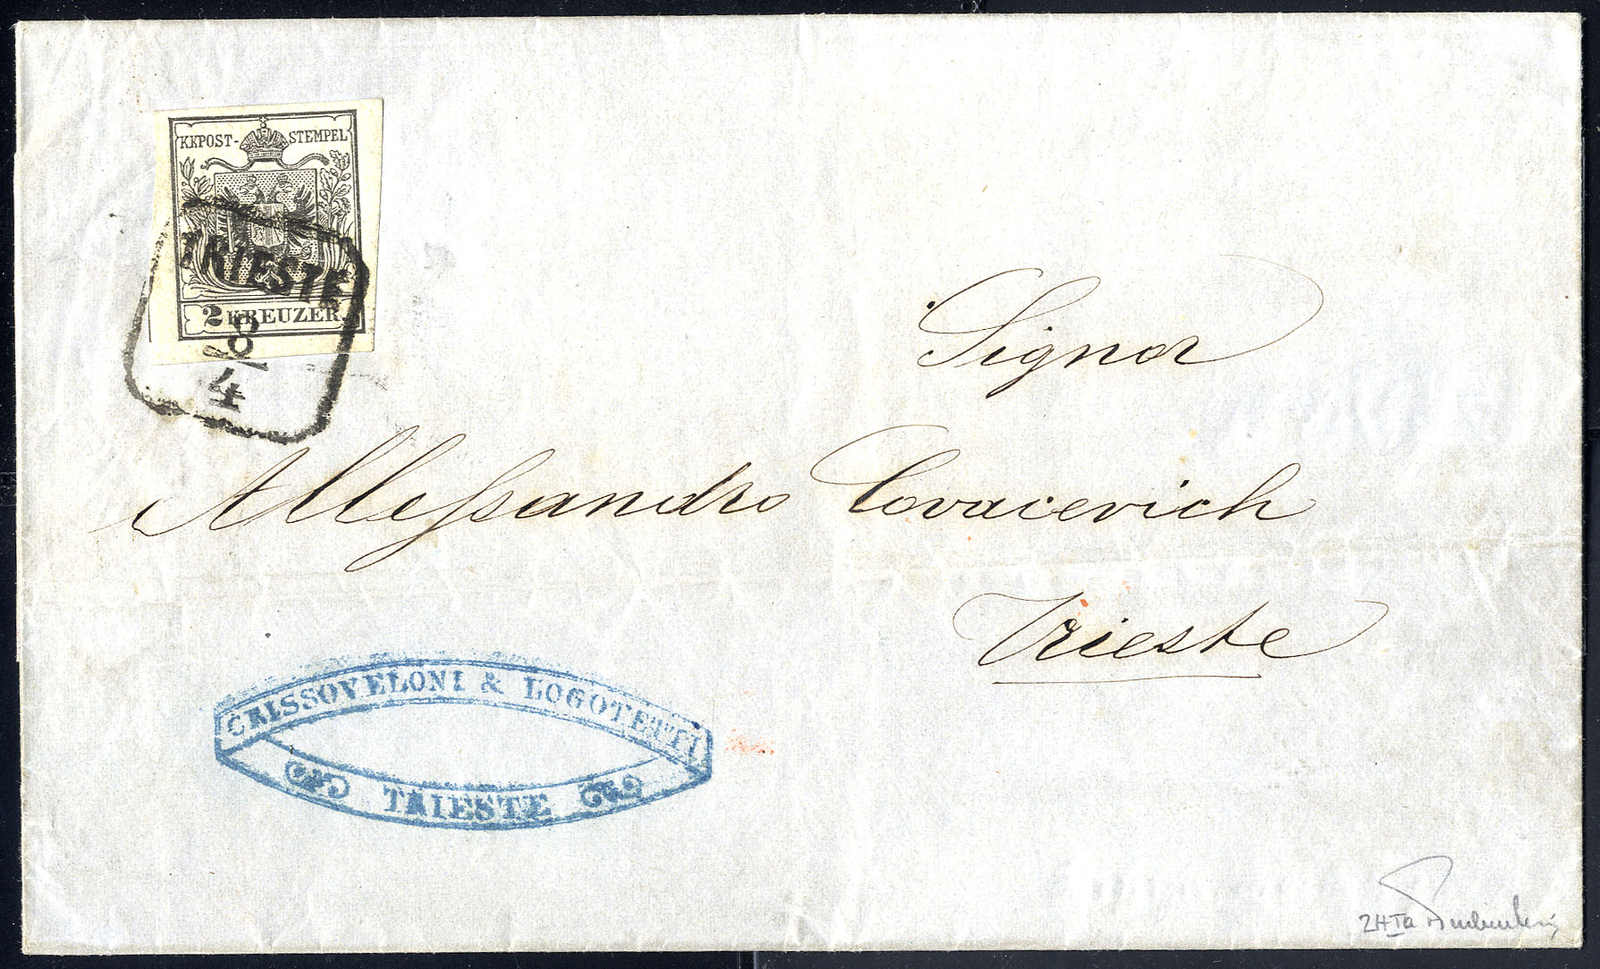 KKPOST-STEMPEL
TRIESTE
2 KREUZER
8
4
Signor
Allessandro Covacevich
Trieste
CRISSOVELONI & LOGOTETTI
TRIESTE